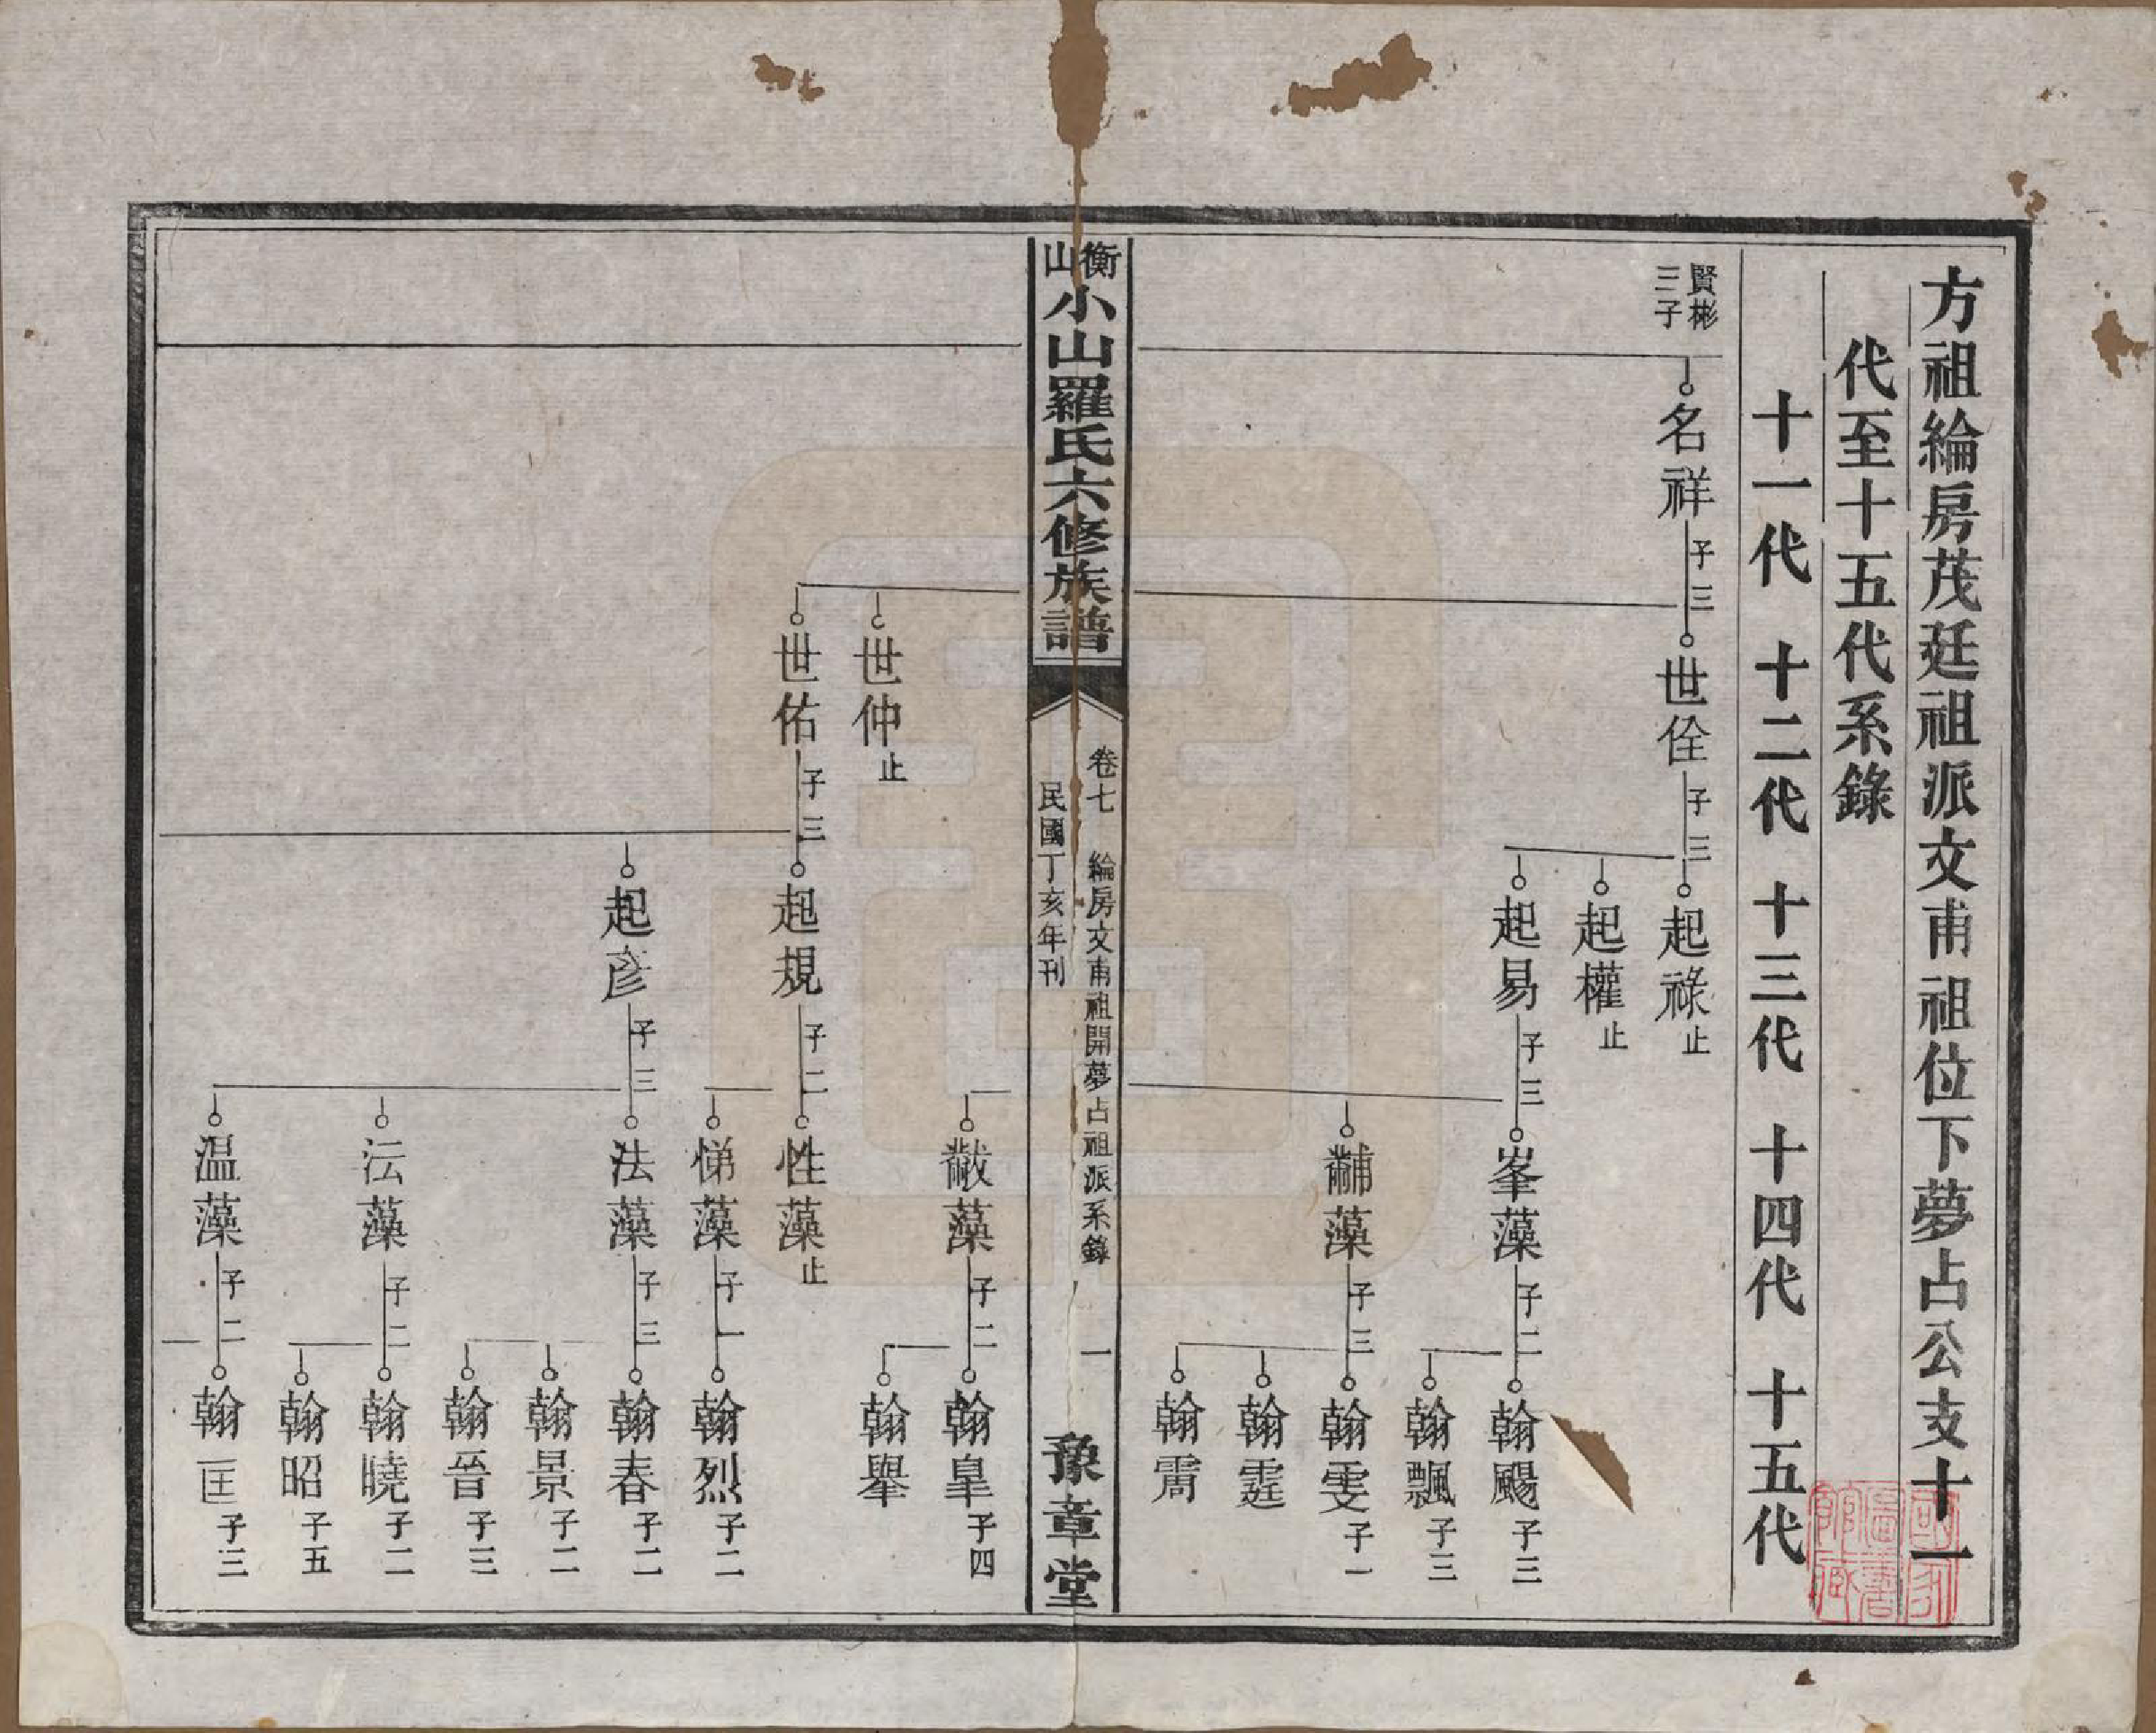 方祖綸房茂廷祖派文甫祖位下夢占公支十一
代至十五代系錄
十一代 十二代 十三代 十四代 十五代
賢彬
三子
名祥 子三
世佺 子三
起祿 止
起權 止
起易 子三
峯藻 子二
翰颺 子三
翰飄 子三
黼藻 子三
翰雯 子一
翰霆
翰霌
衡山小山羅氏六修族譜
卷七 綸房文甫祖開夢占祖派系錄 一
民國丁亥年刊
豫章堂
黻藻 子二
翰皐 子四
翰舉
世仲 止
世佑 子三
起規 子二
性藻 止
悌藻 子一
翰烈 子二
起彥 子三
法藻 子三
翰春 子二
翰景 子二
翰晉 子三
沄藻 子二
翰曉 子二
翰昭 子五
温藻 子二
翰匡 子三